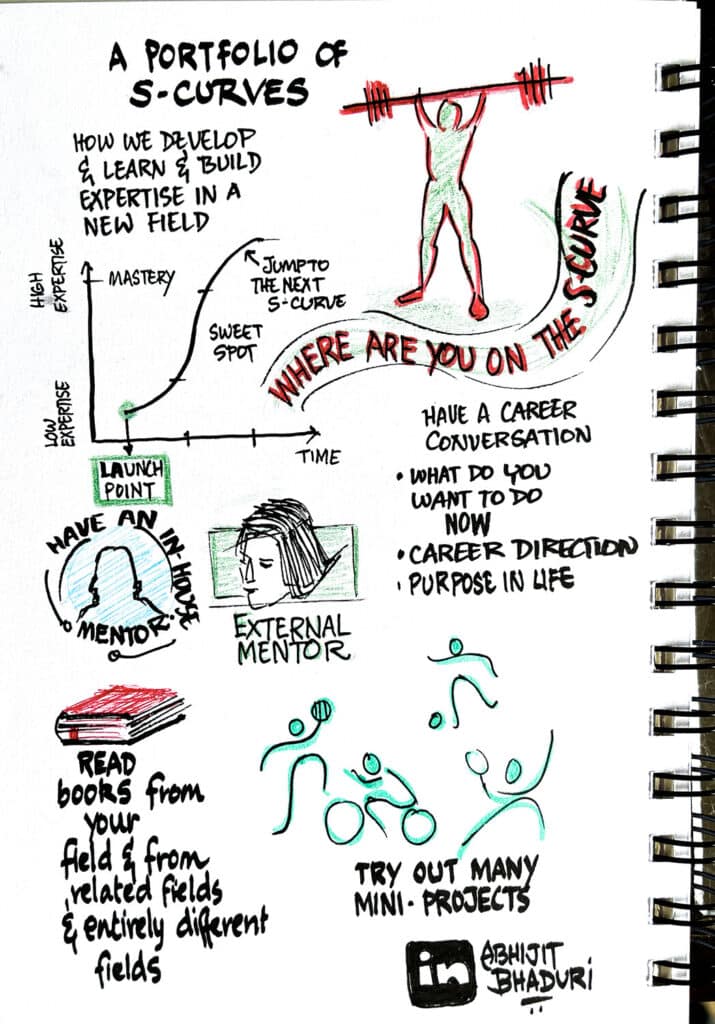 A PORTFOLIO OF
S-CURVES
HOW WE DEVELOP
& LEARN & BUILD
EXPERTISE IN A
NEW FIELD
HIGH
EXPERTISE
MASTERY
JUMP TO
THE NEXT
S-CURVE
SWEET
SPOT
LOW
EXPERTISE
TIME
LAUNCH
POINT
WHERE ARE YOU ON THE S-CURVE
HAVE A CAREER
CONVERSATION
• WHAT DO YOU
WANT TO DO
NOW
• CAREER DIRECTION
• PURPOSE IN LIFE
HAVE AN IN-HOUSE
MENTOR
EXTERNAL
MENTOR
READ
books from
your
field & from
related fields
& entirely different
fields
TRY OUT MANY
MINI-PROJECTS
in
ABHIJIT
BHADURI